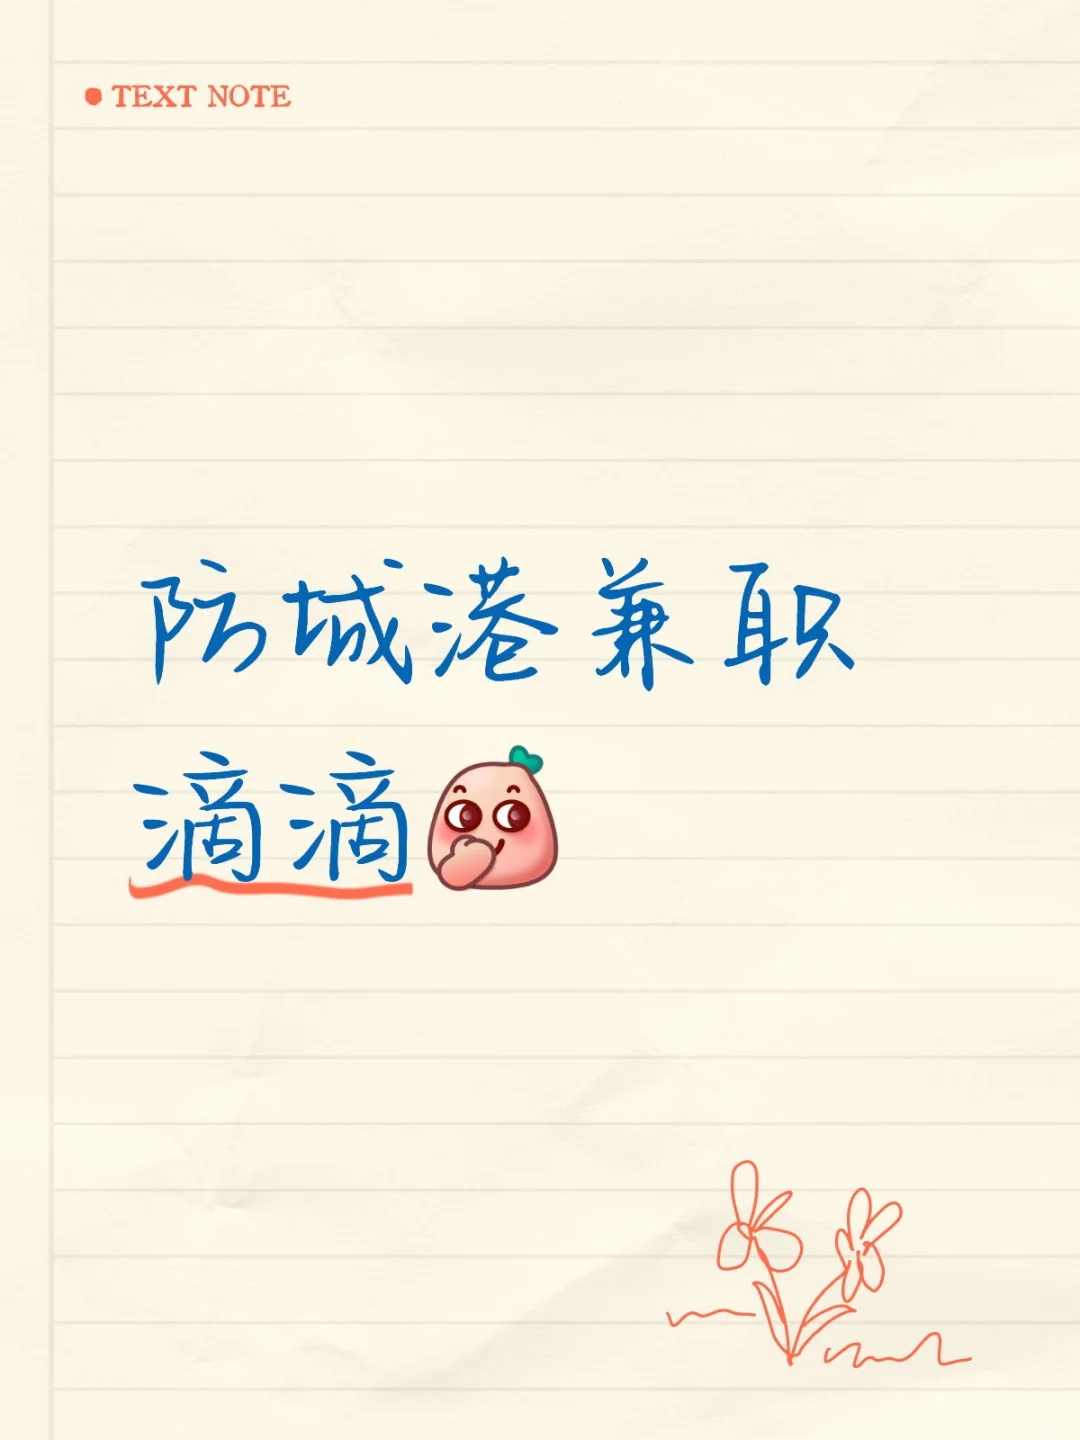 TEXT NOTE
防城港兼职
滴滴